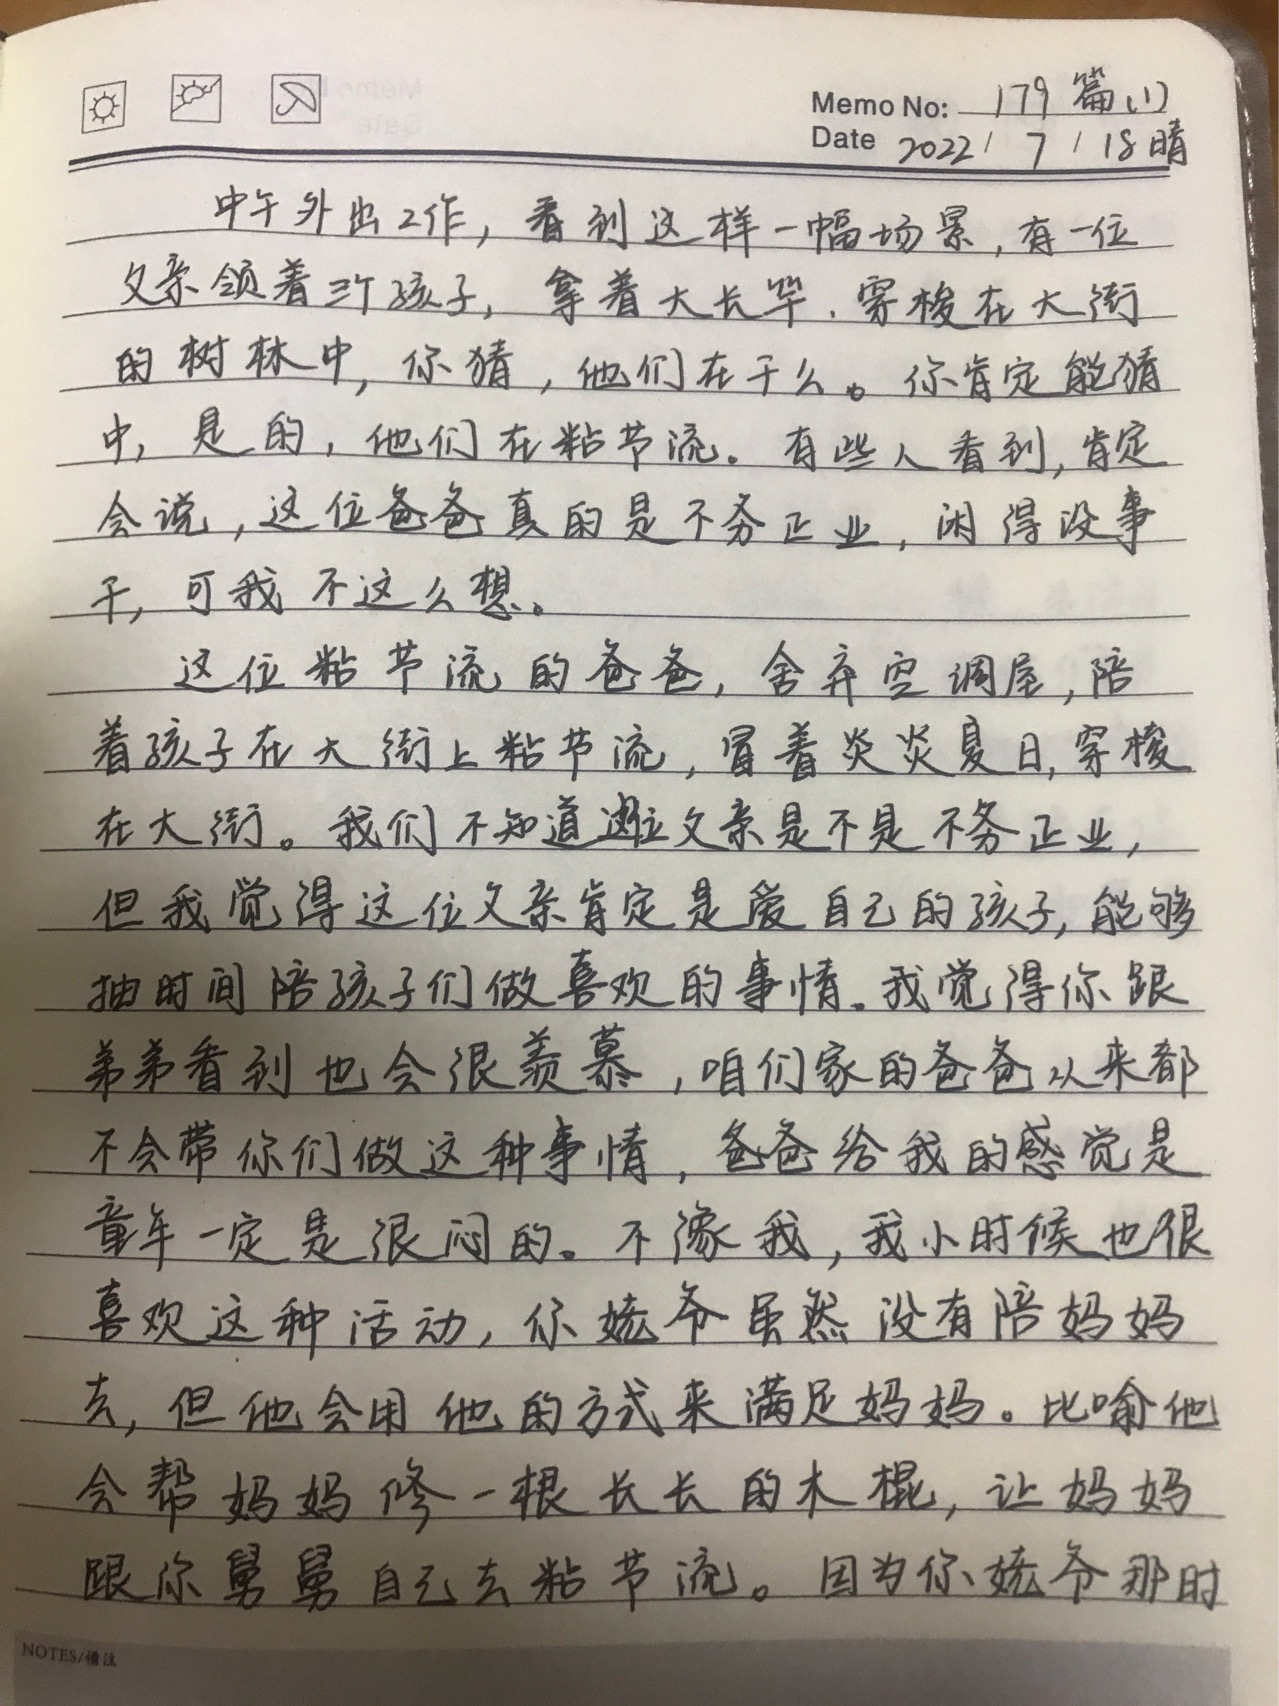 Memo No: 179篇(1)
Date 2022/7/18晴
中午外出工作，看到这样一幅场景，有一位
父亲领着三个孩子，拿着大长竿．穿梭在大街
的树林中，你猜，他们在干么。你肯定能猜
中，是的，他们在粘节流。有些人看到，肯定
会说，这位爸爸真的是不务正业，闲得没事
干，可我不这么想。
这位粘节流的爸爸，舍弃空调屋，陪
着孩子在大街上粘节流，冒着炎炎夏日，穿梭
在大街。我们不知道这位父亲是不是不务正业，
但我觉得这位父亲肯定是爱自己的孩子，能够
抽时间陪孩子们做喜欢的事情。我觉得你跟
弟弟看到也会很羡慕，咱们家的爸爸从来都
不会带你们做这种事情，爸爸给我的感觉是
童年一定是很闷的。不像我，我小时候也很
喜欢这种活动，你姥爷虽然没有陪妈妈
去，但他会用他的方式来满足妈妈。比喻他
会帮妈妈修一根长长的木棍，让妈妈
跟你舅舅自己去粘节流。因为你姥爷那时
NOTES/备注